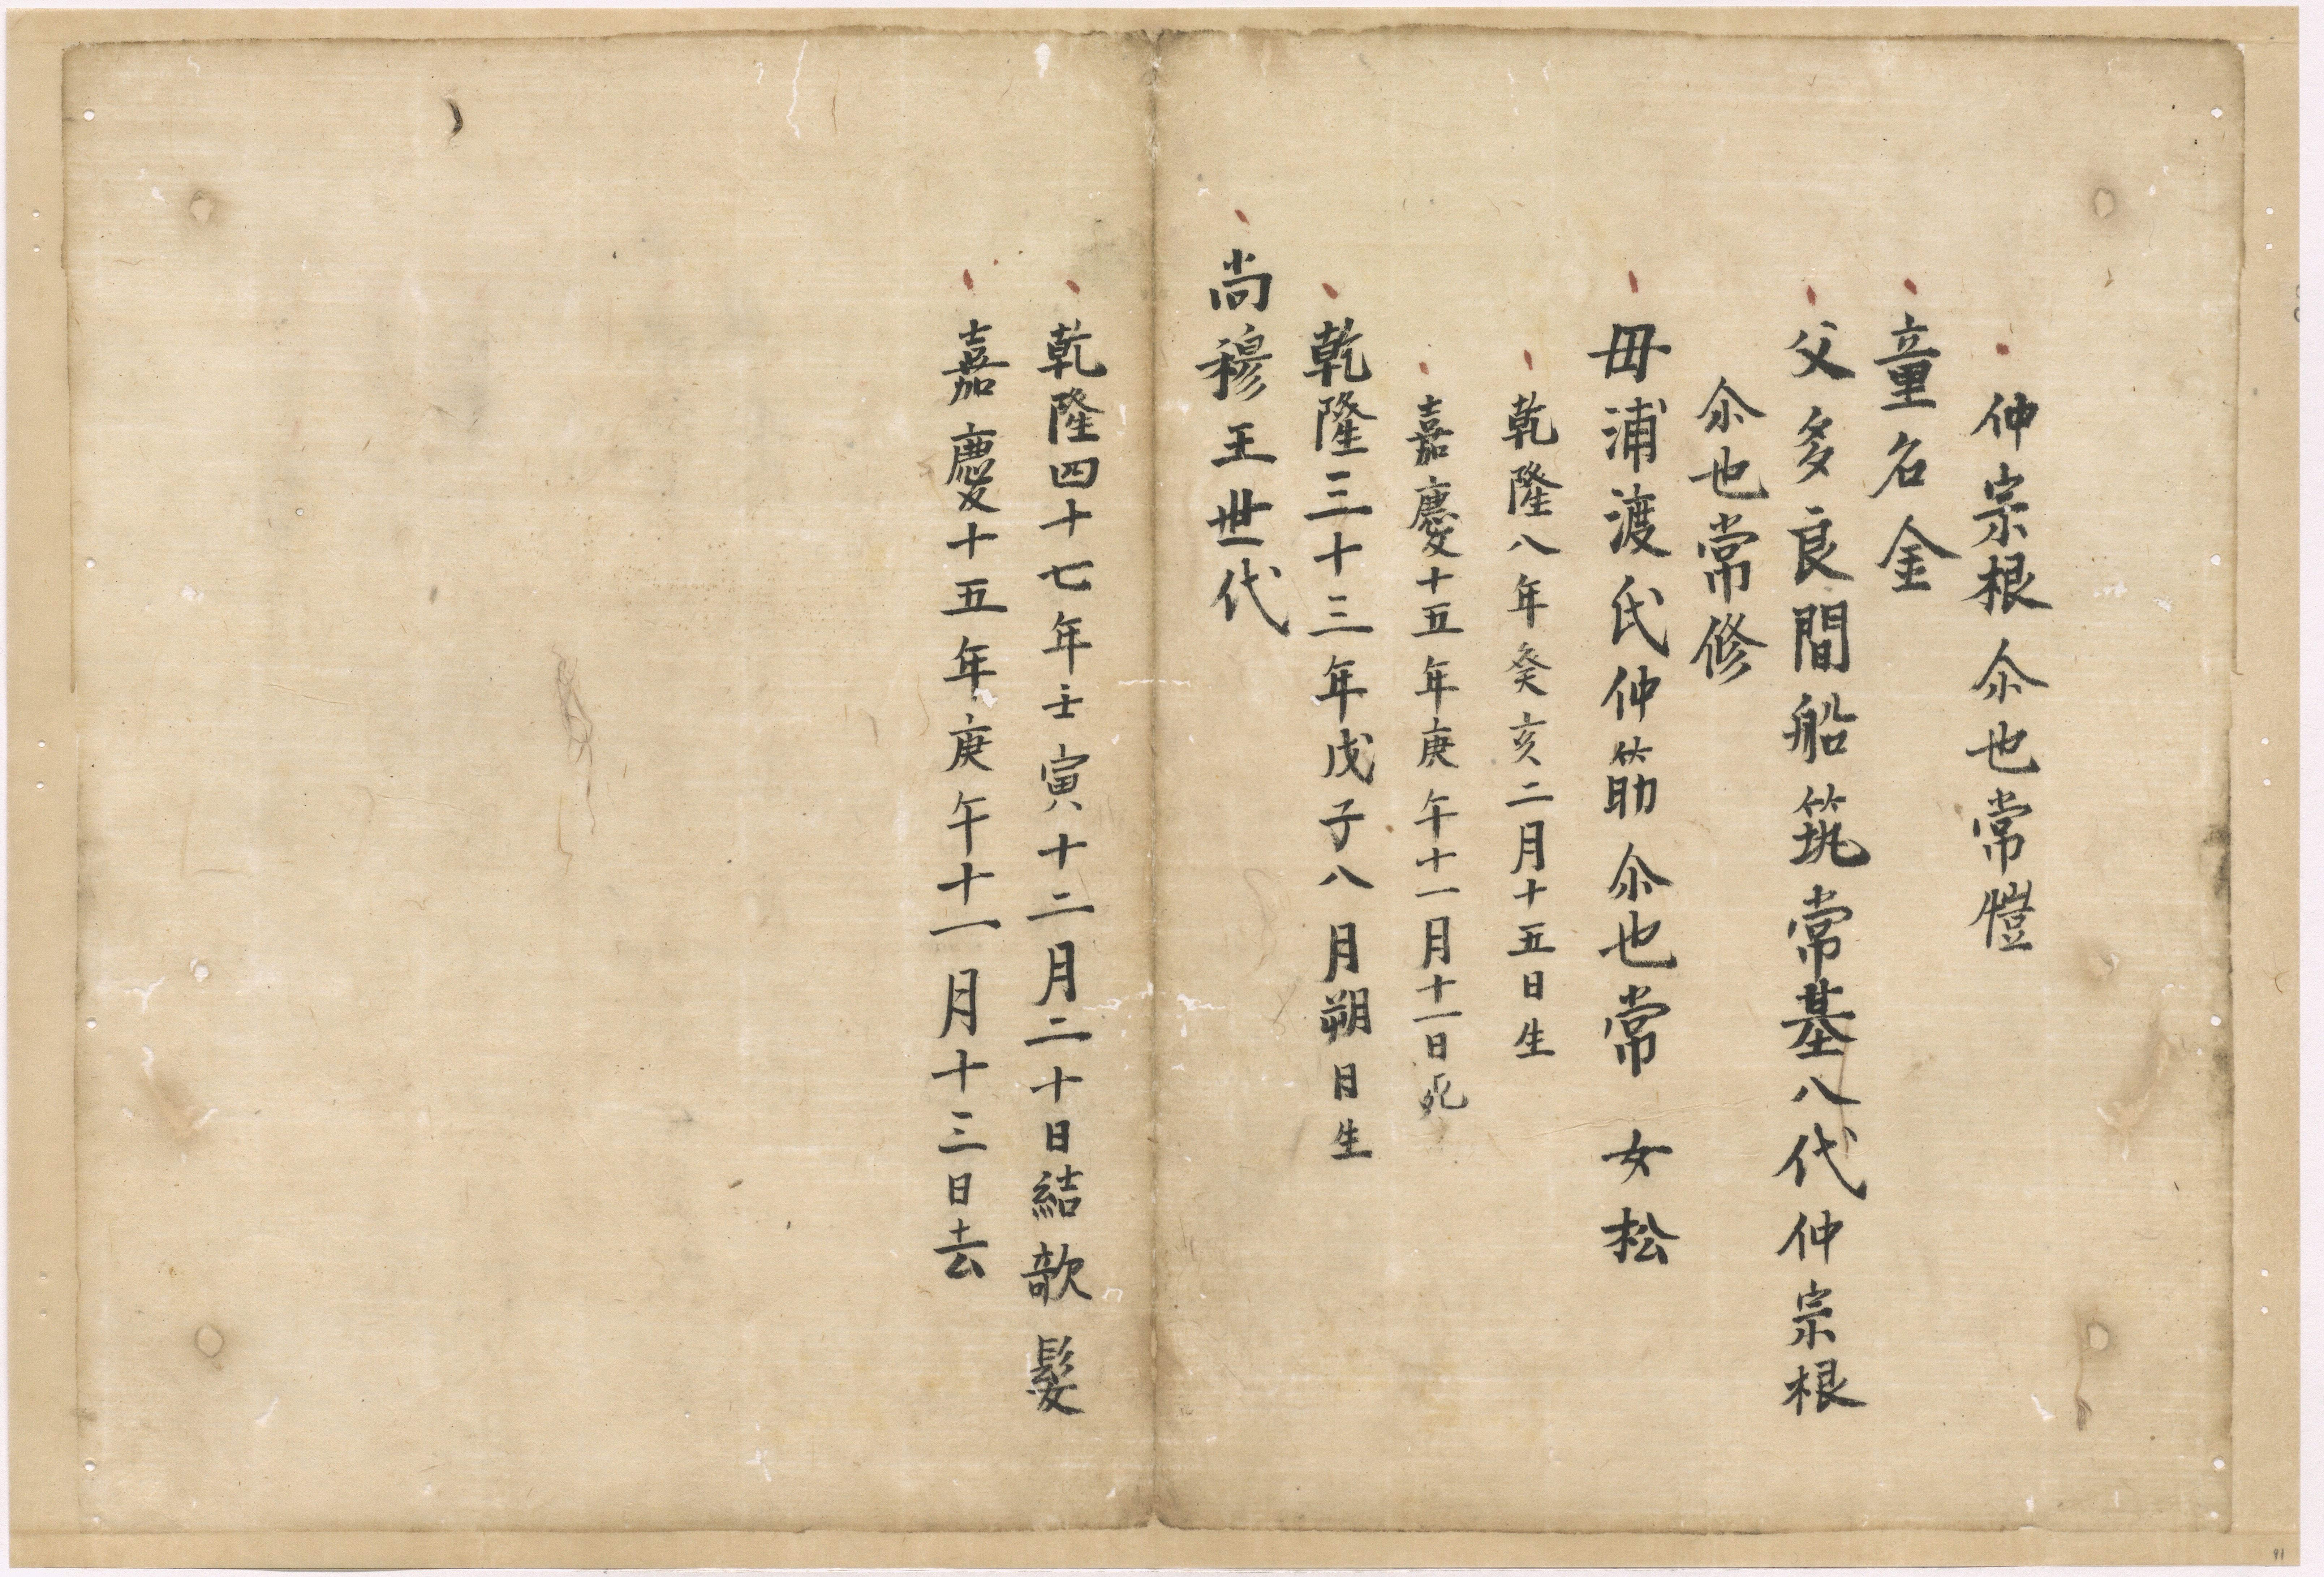 仲宗根尒也常愷
童名金
父多良間船筑常基八代仲宗根
尒也常修
毋浦渡氏仲筋尒也常女松
乾隆八年癸亥二月十五日生
嘉慶十五年庚午十一月十一日死
乾隆三十三年戊子八月朔日生
尚穆王世代
乾隆四十七年壬寅十二月二十日結欹髮
嘉慶十五年庚午十一月十三日去
91